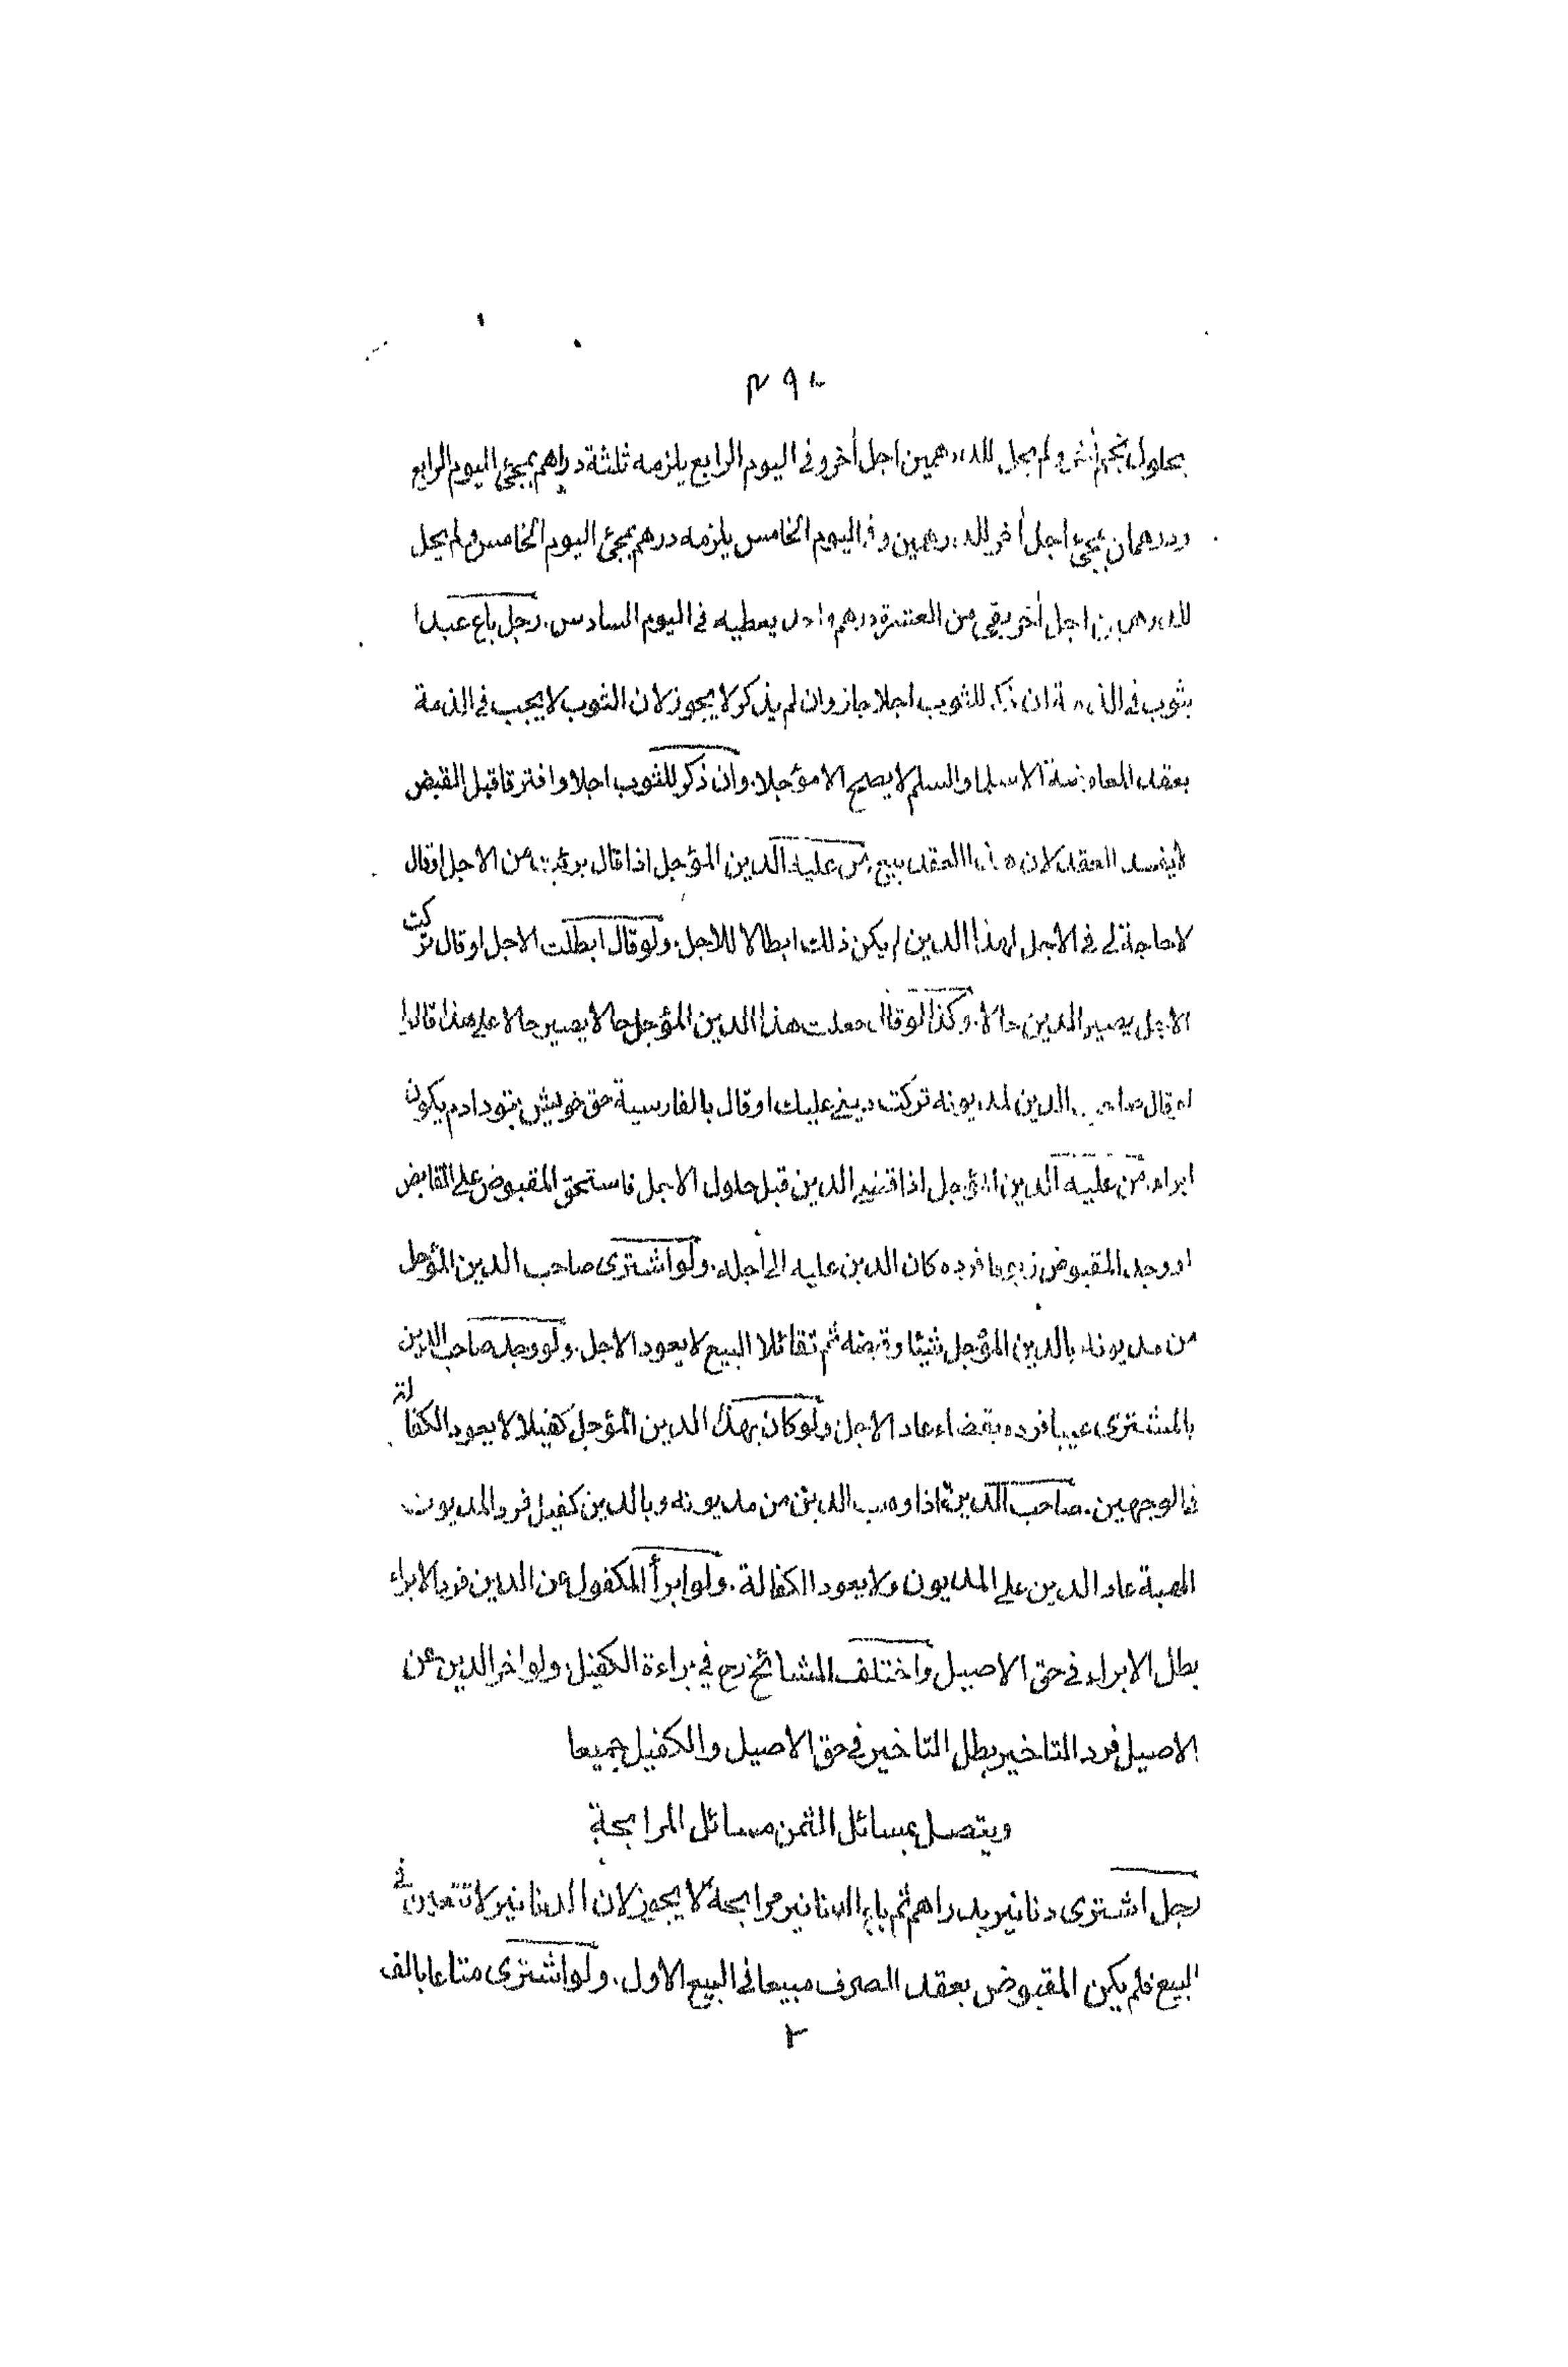 بحلول نجم أخر ولم يحل للدرهمين اجل أخر وفى اليوم الرابع يلزمه ثلثة دراهم بمجئ اليوم الرابع
ودرهمان بمجئ اجل أخر للدرهمين وفى اليوم الخامس يلزمه درهم بمجئ اليوم الخامس ولم يحل
للدرهمين اجل أخر بقى من العشرة درهم واحد يعطيه فى اليوم السادس. رجل باع عبدا
بثوب فى الذمة ان ذكر للثوب اجلا جاز وان لم يذكر لا يجوز لان الثوب لا يجب فى الذمة
بعقد المعاوضة الا سلما والسلم لا يصح الا مؤجلا. وان ذكر للثوب اجلا وافترقا قبل القبض
لا يفسد العقد لان هذا العقد بيع. من عليه الدين المؤجل اذا قال برئت من الاجل اوقال
لا حاجة لى فى الاجل لهذا الدين لم يكن ذلك ابطالا للاجل. ولو قال ابطلت الاجل او قال تركت
الاجل يصير الدين حالا. وكذا لو قال جعلت هذا الدين المؤجل حالا يصير حالا على هذا قالوا
لو قال صاحب الدين لمديونه تركت دينى عليك او قال بالفارسية حق خويش بتو دادم يكون
ابراء. من عليه الدين المؤجل اذا قضى الدين قبل حلول الاجل فاستحق المقبوض على القابض
او وجد المقبوض زيوفا فرده كان الدين عليه الى اجله. ولو اشترى صاحب الدين المؤجل
من مديونه بالدين المؤجل شيئا وقبضه ثم تقائلا البيع لا يعود الاجل. ولو وجد صاحب الدين
بالمشترى عيبا فرده بقضاء عاد الاجل ولو كان بهذا الدين المؤجل كفيلا لا يعود الكفالة
فى الوجهين. صاحب الدين اذا وهب الدين من مديونه وبالدين كفيل فرد المديون
الهبة عاد الدين على المديون ولا يعود الكفالة. ولو ابرأ المكفول عن الدين فرد الابراء
بطل الابراء فى حق الاصيل واختلف المشائخ رح في براءة الكفيل. ولو اخر الدين عن
الاصيل فرد التاخير بطل التاخير فى حق الاصيل والكفيل جميعا
ويتصل بمسائل الثمن مسائل المرابحة
رجل اشترى دنانير بدراهم ثم باع الدنانير مرابحة لا يجوز لان الدنانير لا تتعين فى
البيع فلم يكن المقبوض بعقد الصرف مبيعا فى البيع الاول. ولو اشترى متاعا بالف
٢